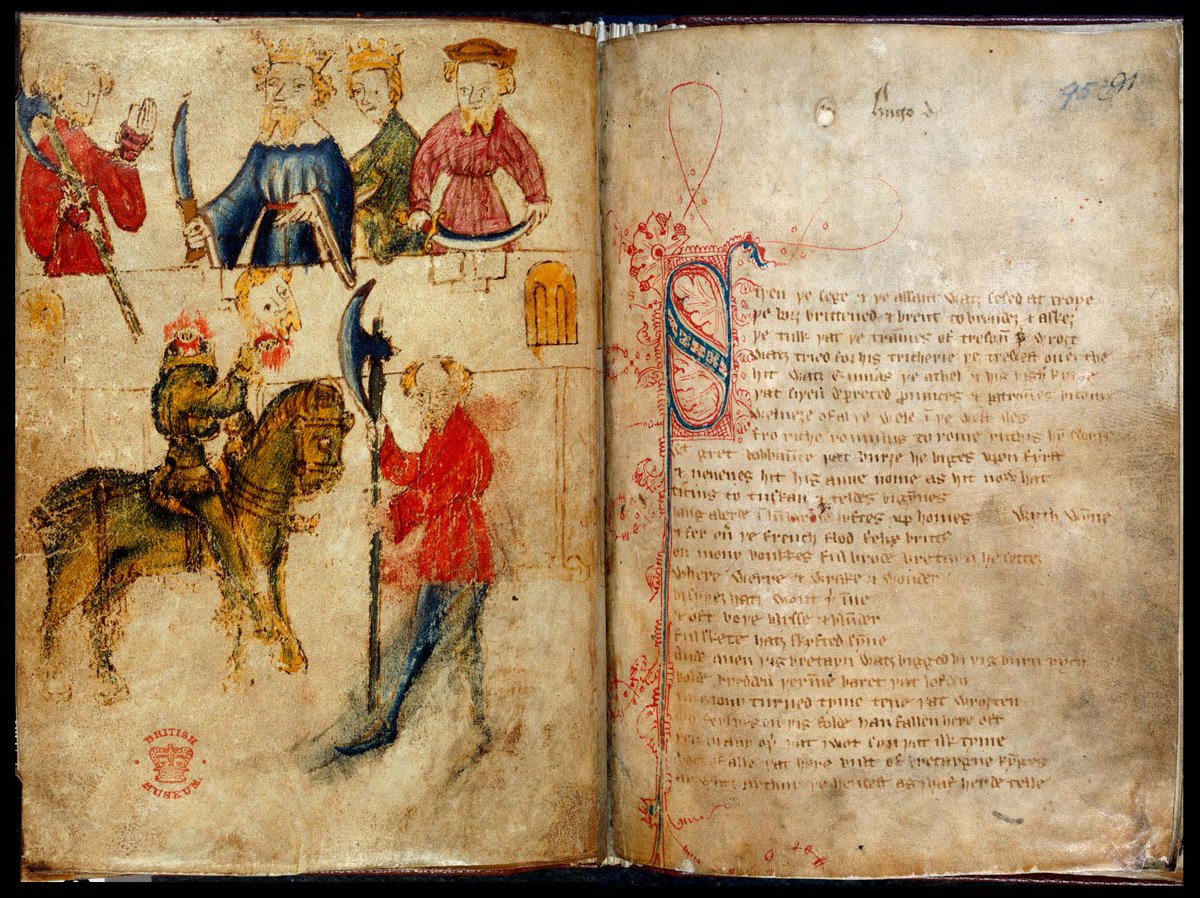 BRITISH
MUSEUM
91
Hugo de
Siþen þe sege & þe assaut watz sesed at troye
þe borȝ brittened & brent to brondez & askez
þe tulk þat þe trāmes of tresoun þ̄ wroȝt
Watz tried for his tricherie þe trewest on erthe
hit watz Ennias þe athel & his highe kynde
þat siþen depreced prouinces & patrounes bicome
Welneȝe of al þe wele ī þe west iles
fro riche romulus to rome ricchis hȳ swyþe
gret bobbaūce þat burȝe he biges vpon fyrst
& neuenes hit his aune nome as hit now hat
ticius to tuskan & teldes bigȳnes
langaberde ī lyftes vp homes wyth wȳne
& fer ouer þe french flod felix brutus
on mony bonkkes ful brode bretayn he settez
Where werre & wrake & wonder
bi syþez hatz wont þ̄ īne
& oft boþe blysse & blunder
ful skete hatz skyfted sȳne
Ande quen þis bretayn watz bigged bi þis burn rych
bolde bredden þerīne baret þat lofden
in mony turned tyme tene þat wroȝten
mo ferlyes on þis folde han fallen here oft
þen in any oþer þat I wot syn þat ilk tyme
Bot of alle þat here bult of bretaygne kynges
ay watz arthur þe hendest as I haf herde telle